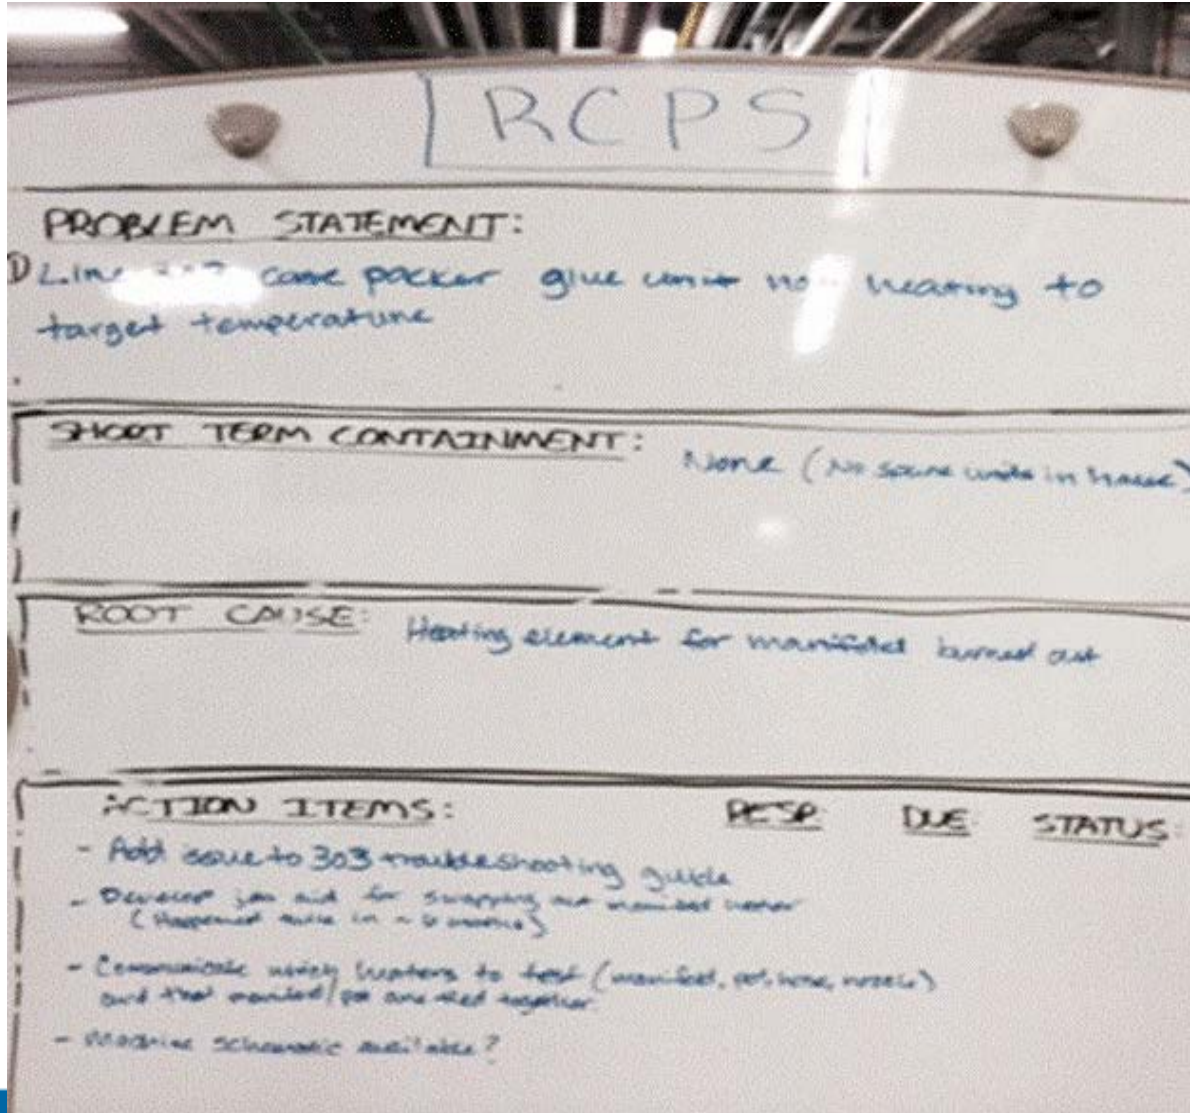 RCPS
PROBLEM STATEMENT:
① Line case packer glue unit not heating to
target temperature
SHORT TERM CONTAINMENT:
None (No spare units in house)
ROOT CAUSE: Heating element for manifold burned out
ACTION ITEMS: RESP. DUE STATUS:
- Add issue to 303 troubleshooting guide
- Develop job aid for swapping out manifold heater
(Happened twice in ~ 6 months)
- Communicate which heaters to test (manifold, pot, hose, nozzle)
and that manifold/pot are tied together.
- Machine schematic available?